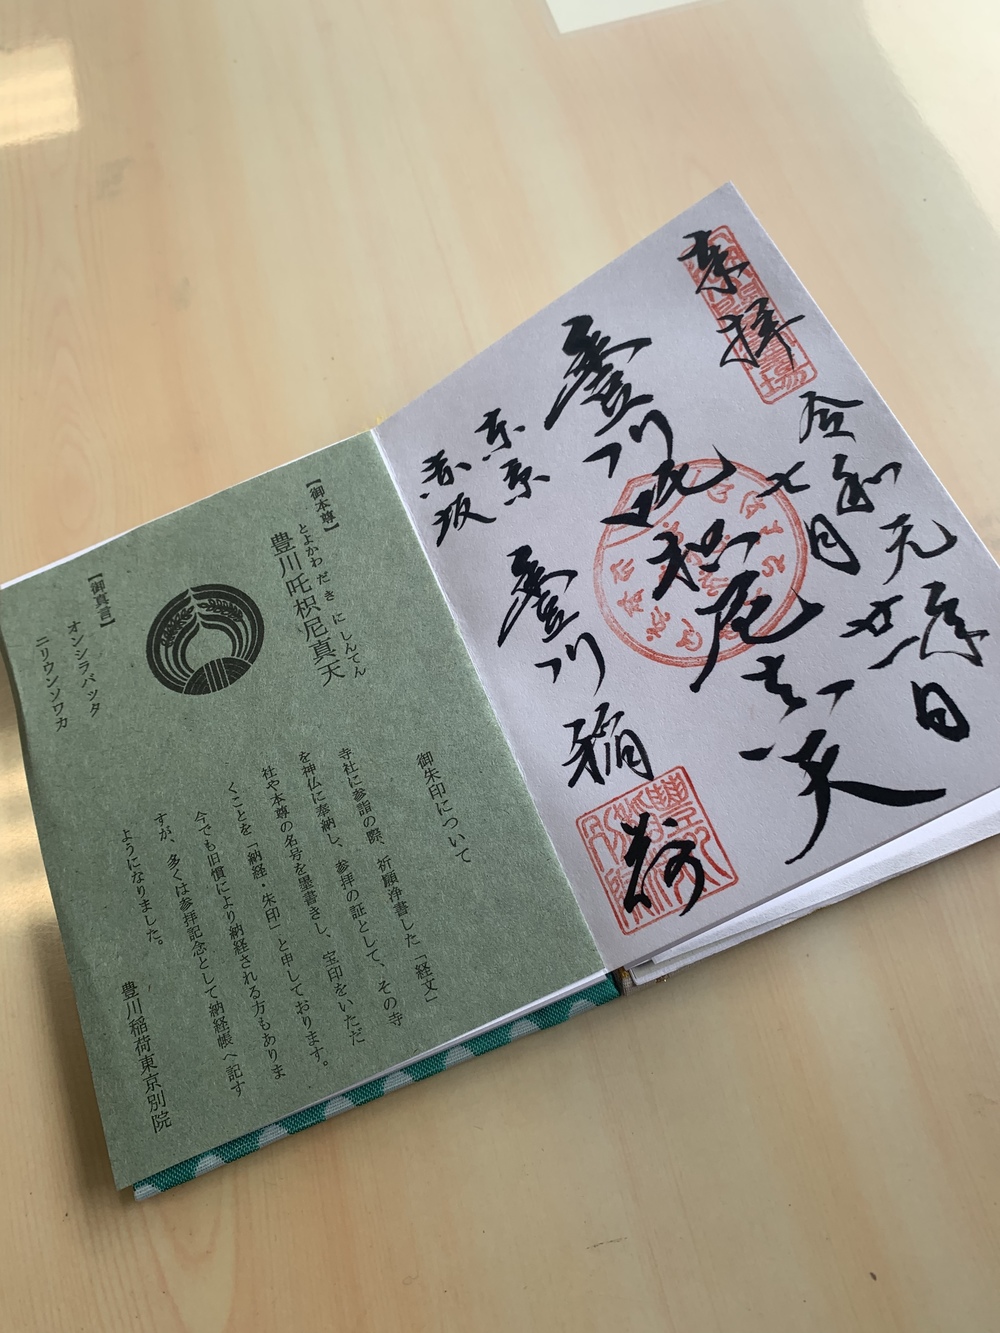 奉拝
令和元年
七月廿一日
豊川吒枳尼真天
東京
赤坂
豊川稲荷
【御本尊】
とよかわ だ き に しんてん
豊川吒枳尼真天
【御真言】
オンシラバッタ
ニリウンソワカ
御朱印について
寺社に参詣の際、祈願浄書した「経文」
を神仏に奉納し、参拝の証として、その寺
社や本尊の名号を墨書きし、宝印をいただ
くことを「納経・朱印」と申しております。
今でも旧慣により納経される方もありま
すが、多くは参拝記念として納経帳へ記す
ようになりました。
豊川稲荷東京別院